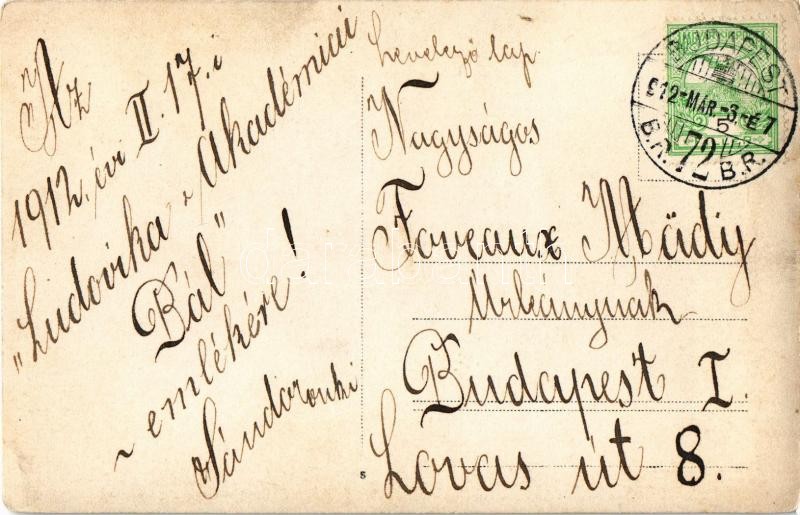 Az
1912. évi II. 17. i
"Ludovika - Akadémiai
Bál"
~ emlékére!
Sándor
Levelező lap
Nagyságos
Foveaux Mädy
Urleánynak
Budapest I.
Lovas út 8.
BUDAPEST
912-MÁR.-3.-É7
5
72
B.R.
S